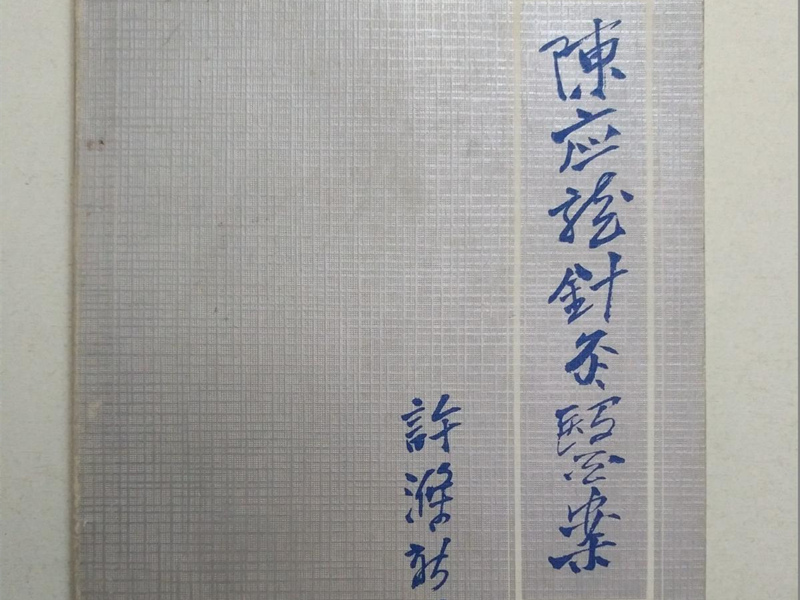 陳应龙針灸醫案
許滌新